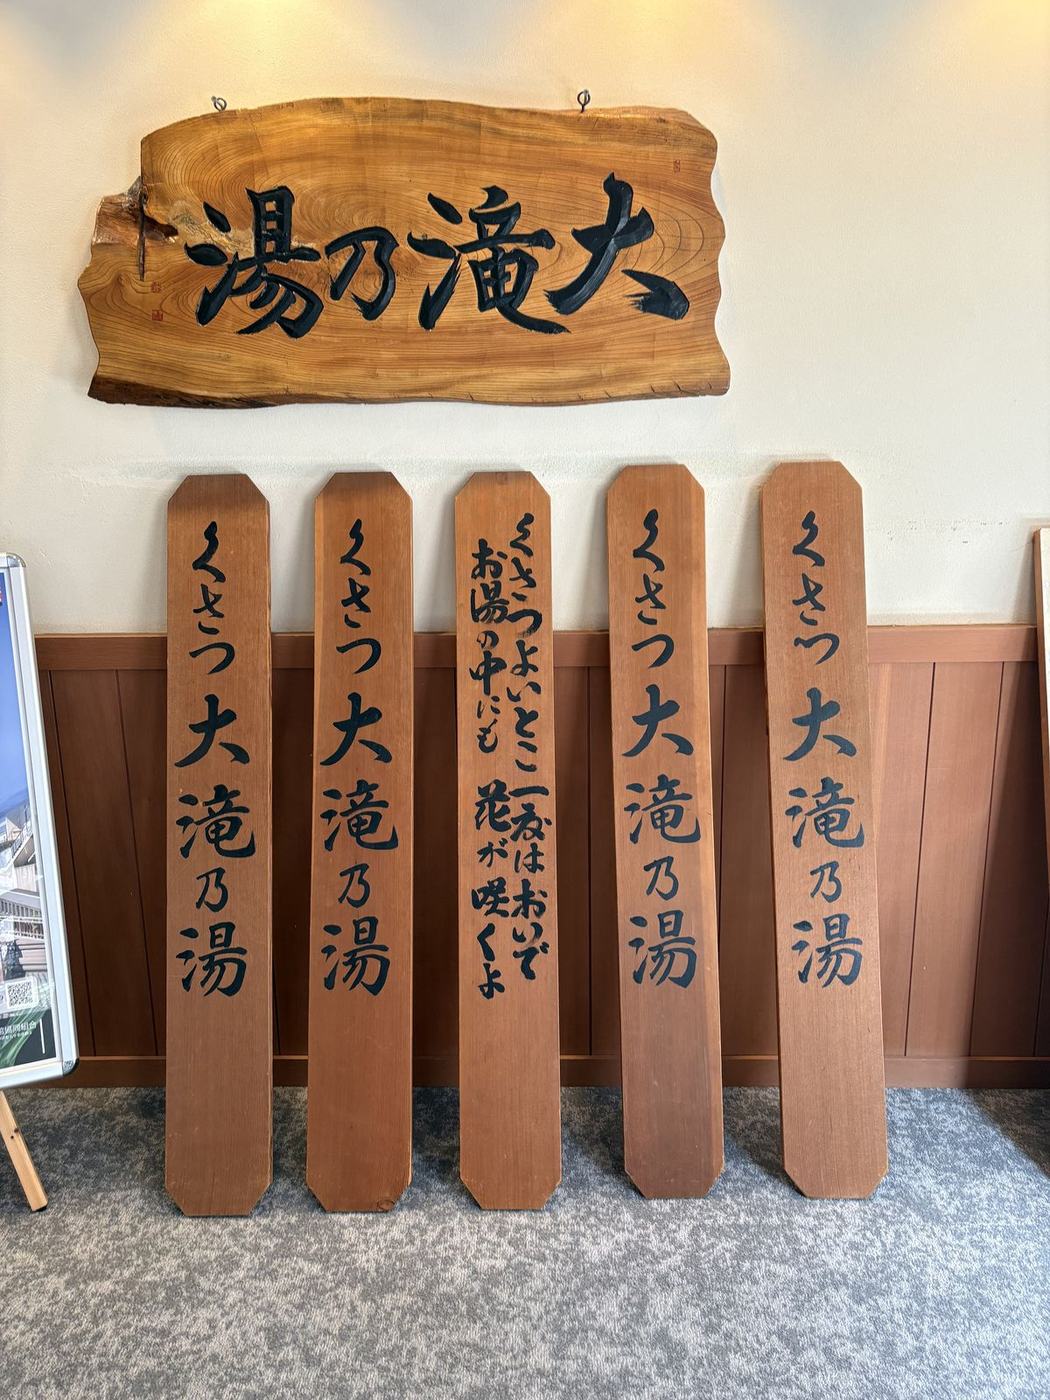 大滝乃湯
くさつ大滝乃湯
くさつ大滝乃湯
くさつよいとこ一度はおいで
お湯の中にも花が咲くよ
くさつ大滝乃湯
くさつ大滝乃湯